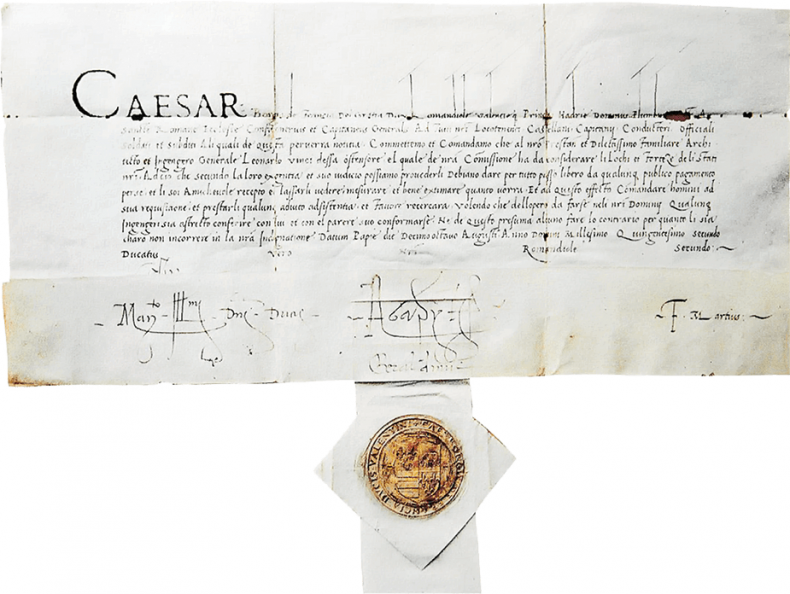 CAESAR Borgia de Francia Dei Gratia Dux Romandiole Valencieq Princeps Hadrie Dominus Plumbini
Sancte Romane Ecclesie Confalonerius et Capitaneus Generalis: Ad Tutti nri Locotenenti Castellani Capitanij Conduttieri Officiali
Soldati et Subditi Ali quali de Questa perverra notitia: Commettemo et Comandamo che al nro Prestan et Dilettissimo Familiare Archi
tetto et Ingegnero Generale Leonardo Vinci dessa ostensore el quale de nra Comissione ha da considerare li Lochi et Forteze deli Stati
nri Adcio che Secundo la loro exigentia et suo iudicio possiamo provederli Debiano dare per tutto passo libero da qualunq publico pagamento
per se et li soi Amichevole recepto et lassarli vedere mesurare et bene extimare quanto vorra Et ad Questo effecto Comandare homini ad
sua requisitione et prestarli qualunq adiuto adsistentia et Favore recercara Volendo che dellopera da farse neli nri Dominij Qualunq
Ingengeri sia astrecto conferire con lui et con el parere suo conformarse Ne de Questo presuma alcuno fare lo contrario per quanto li sia
charo non incorrere in la nra Indignatione Datum Papie die Decimoctavo Augusti Anno Domini Millesimo Quingentesimo Secundo
Ducatus Vero Nri Romandiole Secundo
Man.to Illmi Dni Ducis Agapy F. Martius